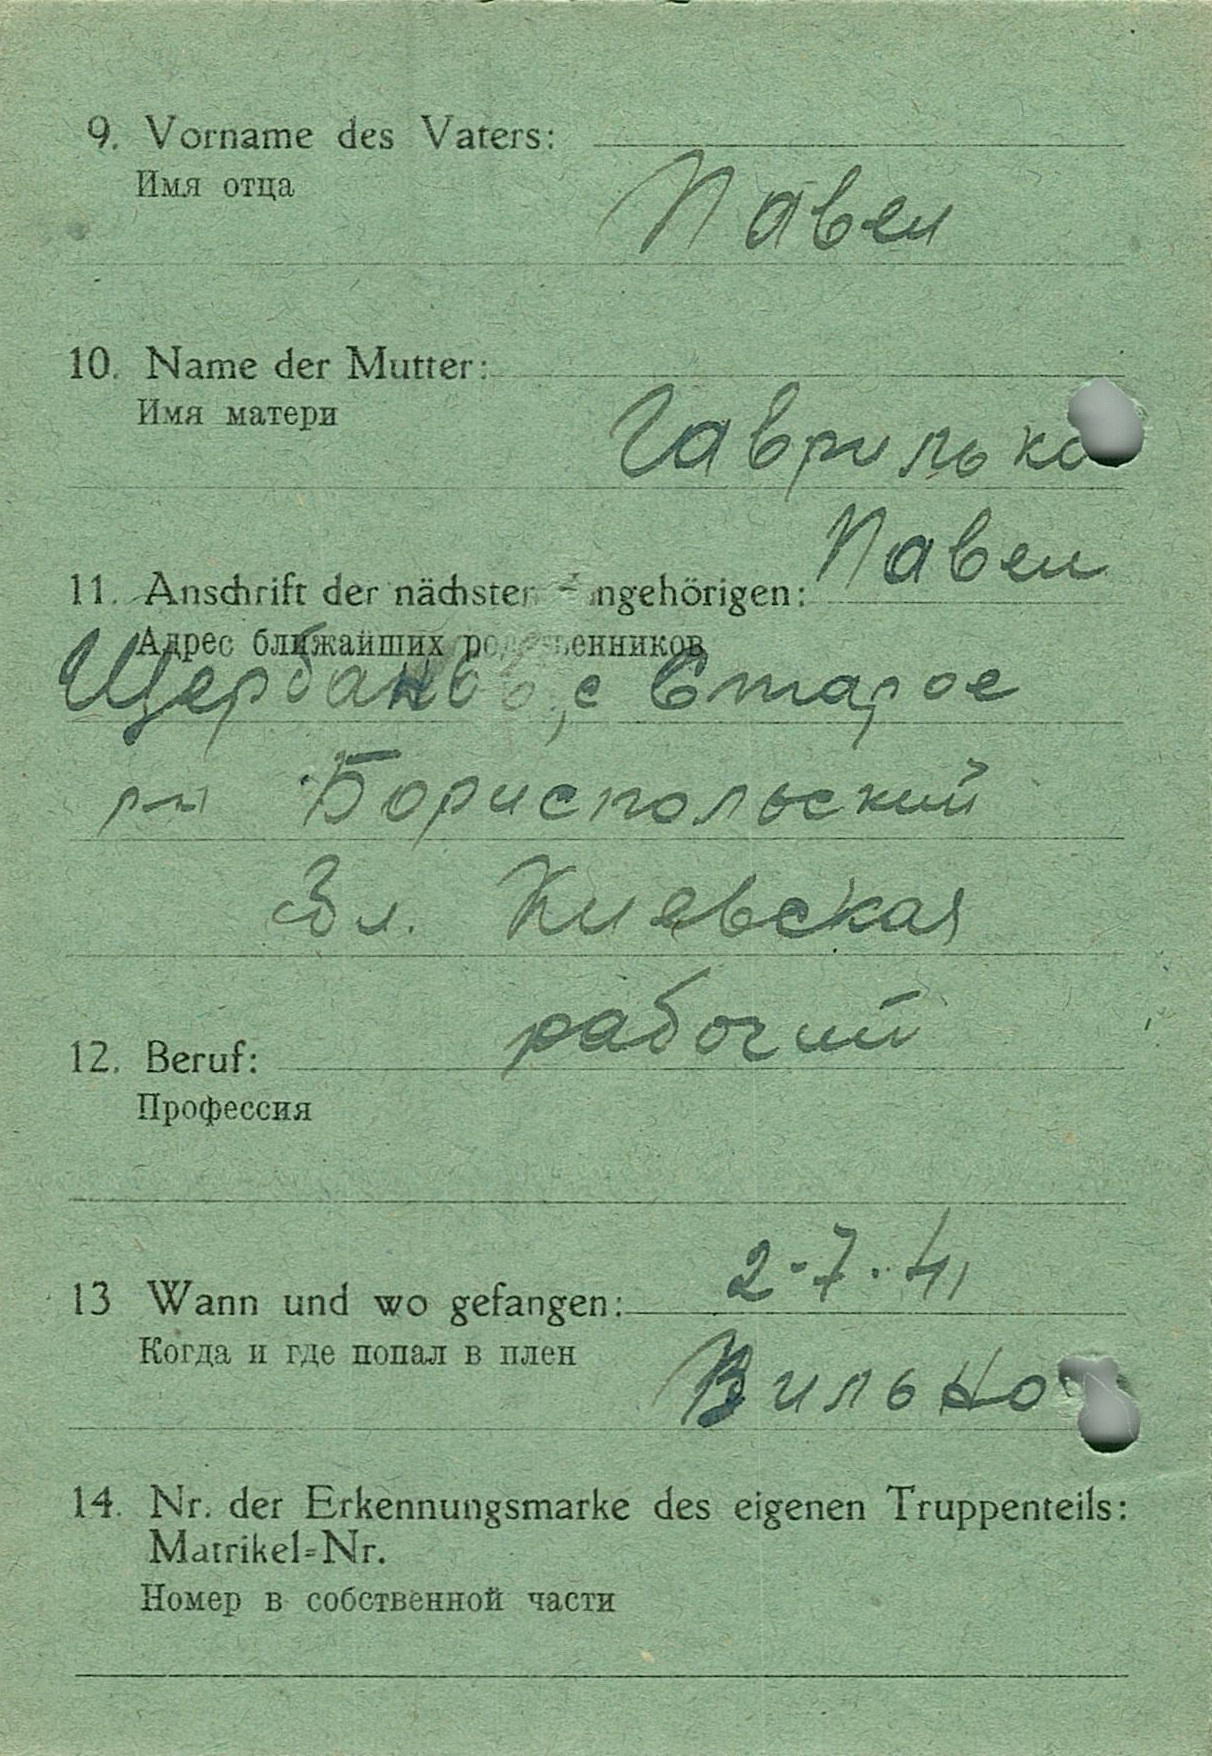 9. Vorname des Vaters:
Имя отца
Павел
10. Name der Mutter:
Имя матери
Гаврилько
Павел
11. Anschrift der nächsten Angehörigen:
Адрес ближайших родственников
с Старое
р-н Бориспольский
Киевская
рабочий
12. Beruf:
Профессия
2-7.41
13 Wann und wo gefangen:
Когда и где попал в плен
Вильно
14. Nr. der Erkennungsmarke des eigenen Truppenteils:
Matrikel=Nr.
Номер в собственной части